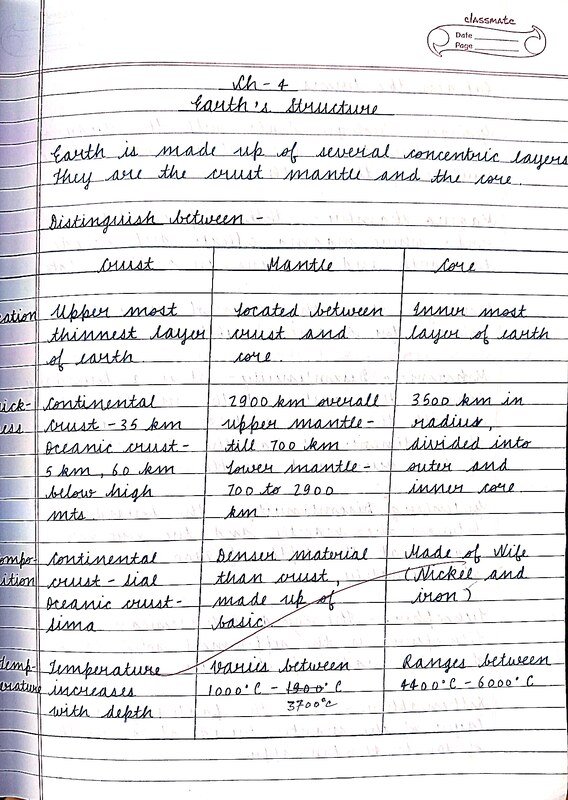 classmate
Date
Page
Ch - 4
Earth's Structure
Earth is made up of several concentric layers
They are the crust mantle and the core.
Distinguish between -
Crust Mantle Core
ation Upper most Located between Inner most
thinnest layer crust and layer of earth
of earth. core.
ick- Continental 2900 km overall 3500 km in
ess crust - 35 km upper mantle- radius,
Oceanic crust- till 700 km divided into
5 km, 60 km Lower mantle- outer and
below high 700 to 2900 inner core.
mts. km
ompo- Continental Denser material Made of Nife
ition crust - sial than crust, (Nickel and
Oceanic crust- made up of iron)
sima basic
Temp- Temperature Varies between Ranges between
erature increases 1000°C - 1900°C 4400°C - 6000°C
with depth. 3700°C